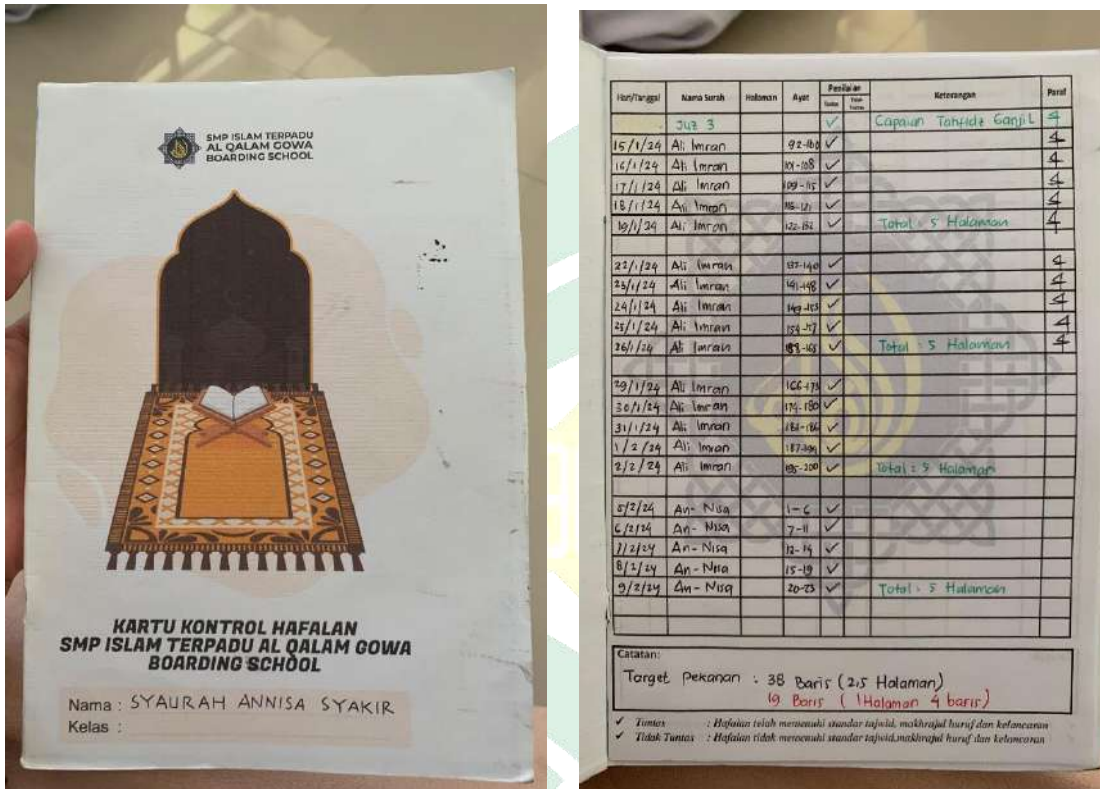 SMP ISLAM TERPADU
AL QALAM GOWA
BOARDING SCHOOL
KARTU KONTROL HAFALAN
SMP ISLAM TERPADU AL QALAM GOWA
BOARDING SCHOOL
Nama : SYAURAH ANNISA SYAKIR
Kelas :
Hari/Tanggal Nama Surah Halaman Ayat Penilaian Keterangan Paraf
Tuntas Tidak Tuntas
Juz 3 ✓ Capaian Tahfidz Ganjil
15/1/24 Ali Imran 92-100 ✓
16/1/24 Ali Imran 101-108 ✓
17/1/24 Ali Imran 109-115 ✓
18/1/24 Ali Imran 116-121 ✓
19/1/24 Ali Imran ✓ Total : 5 Halaman
22/1/24 Ali Imran ✓
23/1/24 Ali Imran 141-148 ✓
24/1/24 Ali Imran 149-153 ✓
25/1/24 Ali Imran 154-157 ✓
26/1/24 Ali Imran ✓ Total : 5 Halaman
29/1/24 Ali Imran 166-173 ✓
30/1/24 Ali Imran 174-180 ✓
31/1/24 Ali Imran 181-186 ✓
1/2/24 Ali Imran ✓
2/2/24 Ali Imran 195-200 ✓ Total : 5 Halaman
5/2/24 An-Nisa 1-6 ✓
6/2/24 An-Nisa 7-11 ✓
7/2/24 An-Nisa 12-14 ✓
8/2/24 An-Nisa 15-19 ✓
9/2/24 An-Nisa 20-23 ✓ Total : 5 Halaman
Catatan:
Target Pekanan : 38 Baris (2,5 Halaman)
19 Baris (1 Halaman 4 baris)
✓ Tuntas : Hafalan telah memenuhi standar tajwid, makhrajul huruf dan kelancaran
✓ Tidak Tuntas : Hafalan tidak memenuhi standar tajwid,makhrajul huruf dan kelancaran